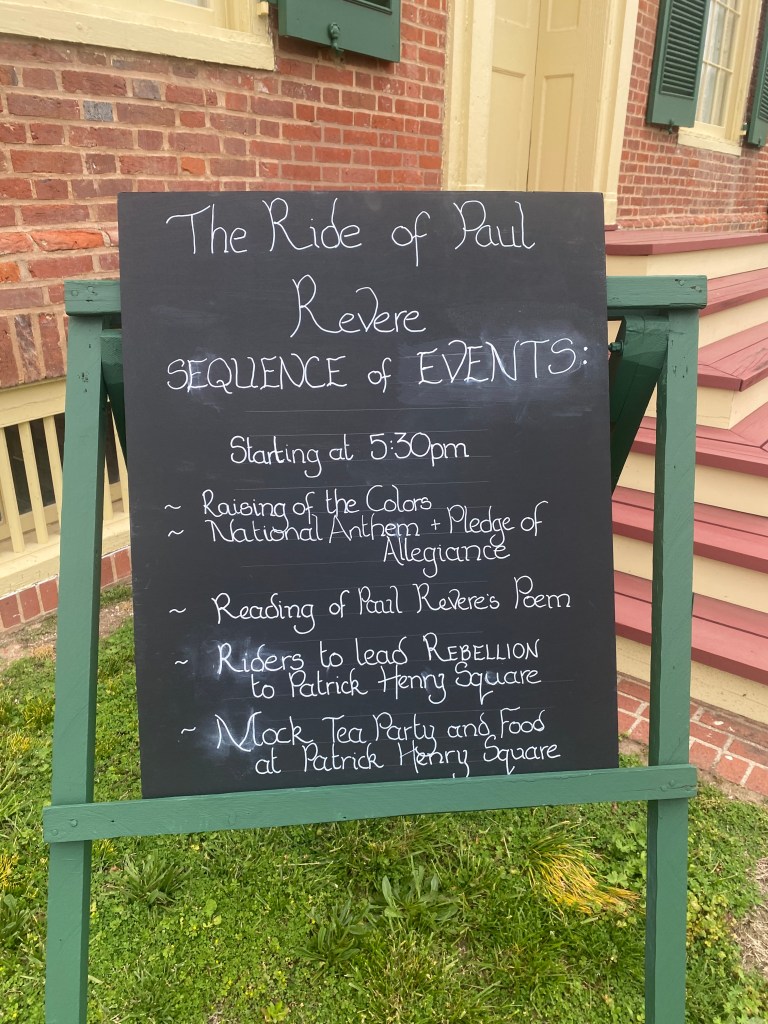 The Ride of Paul
Revere
SEQUENCE of EVENTS:
Starting at 5:30pm
~ Raising of the Colors
~ National Anthem + Pledge of
Allegiance
~ Reading of Paul Revere's Poem
~ Riders to lead REBELLION
to Patrick Henry Square
~ Mock Tea Party and Food
at Patrick Henry Square